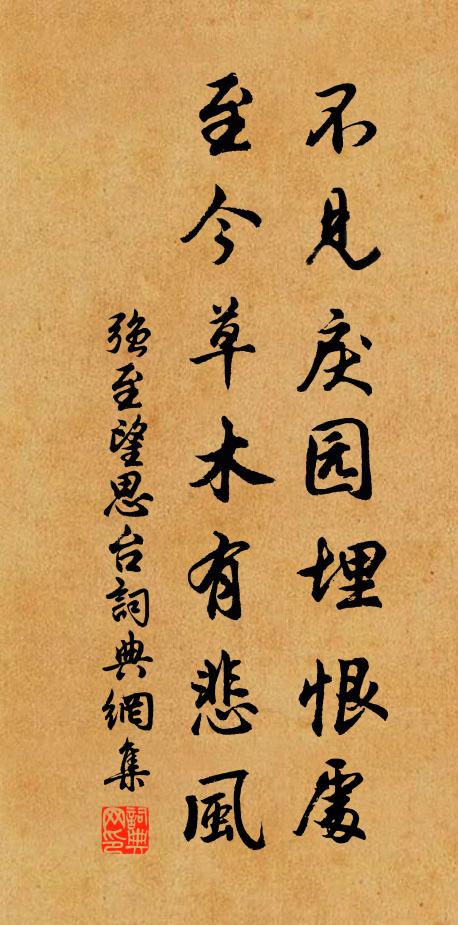 不見戾园埋恨處
至今草木有悲風
強至望思台詞典網集
詞典网印